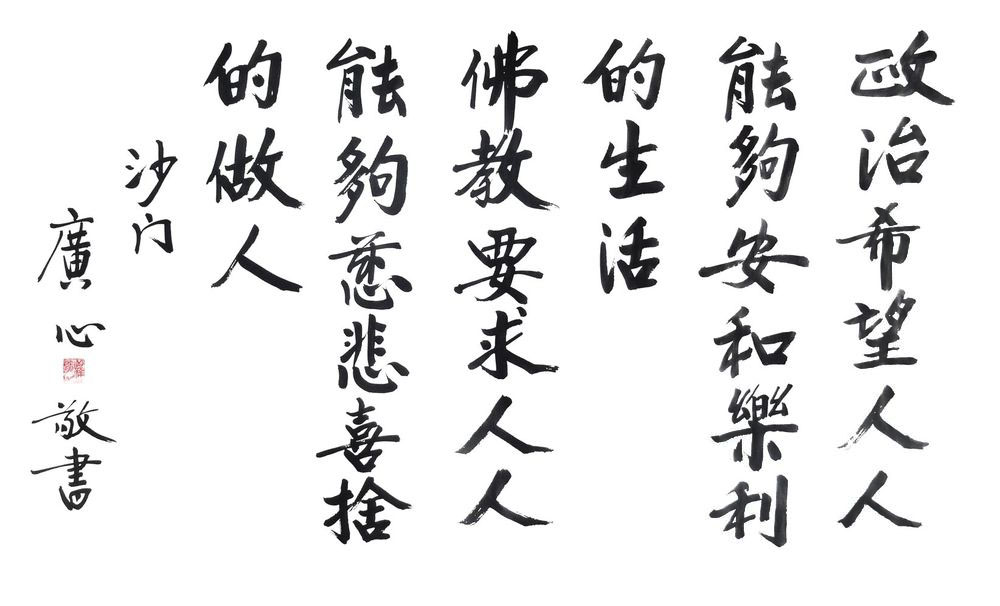 政治希望人人
能夠安和樂利
的生活
佛教要求人人
能夠慈悲喜捨
的做人
沙门
廣心敬書